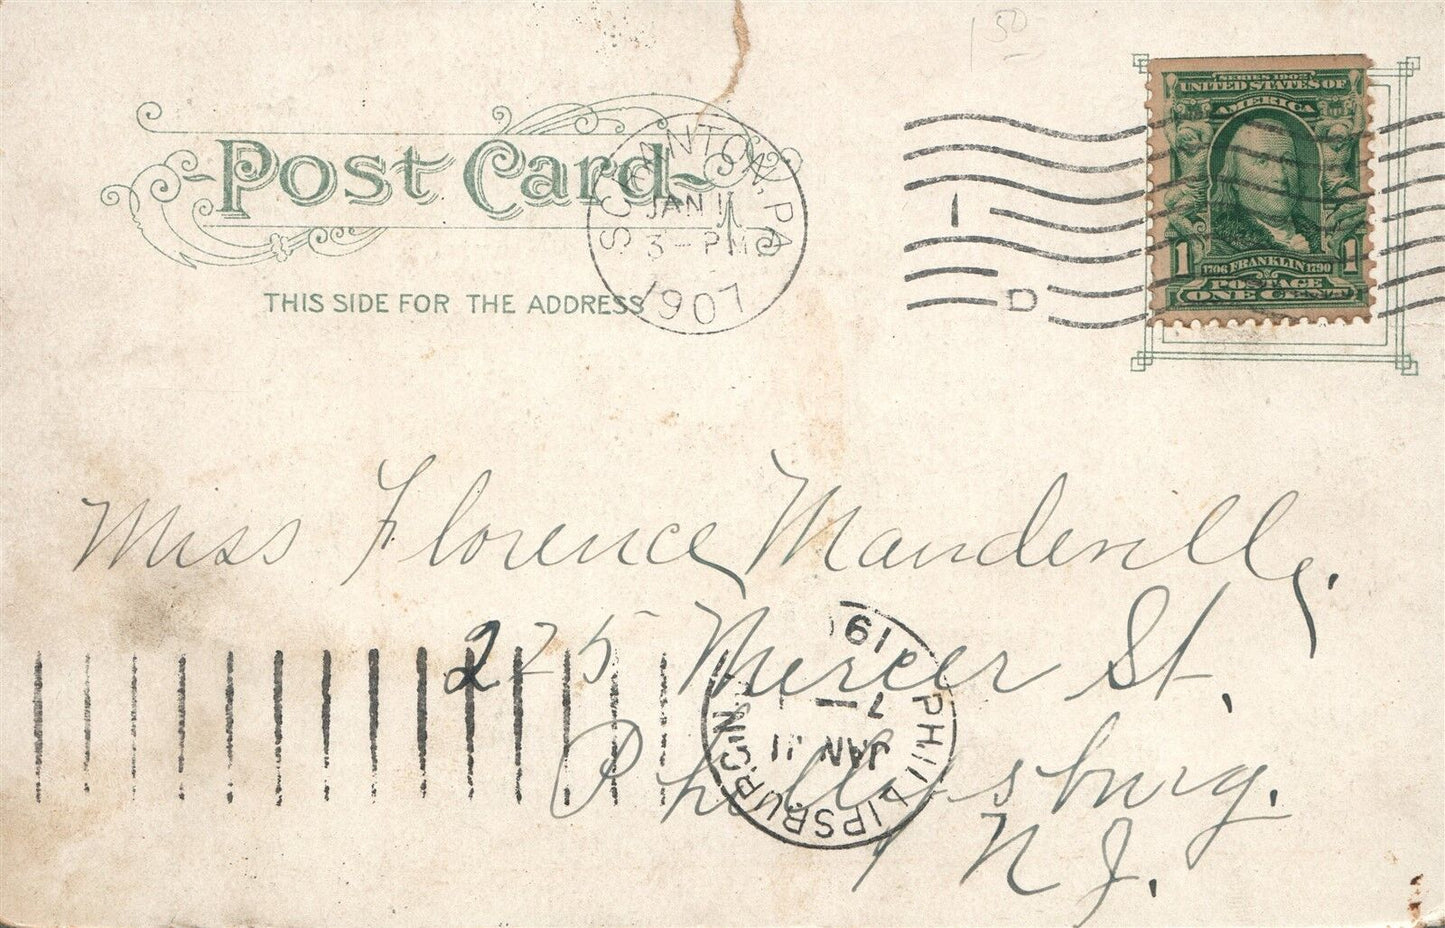 1 50
Post Card
THIS SIDE FOR THE ADDRESS
SCRANTON, PA.
JAN 11
3 - PM
1907
1
D
SERIES 1902
UNITED STATES OF
AMERICA
1 1706 FRANKLIN 1790 1
POSTAGE
ONE CENT
Miss Florence Mandeville,
225 Mercer St.,
Phillipsburg,
N J.
PHILLIPSBURG N.J.
JAN 11
7 –
19